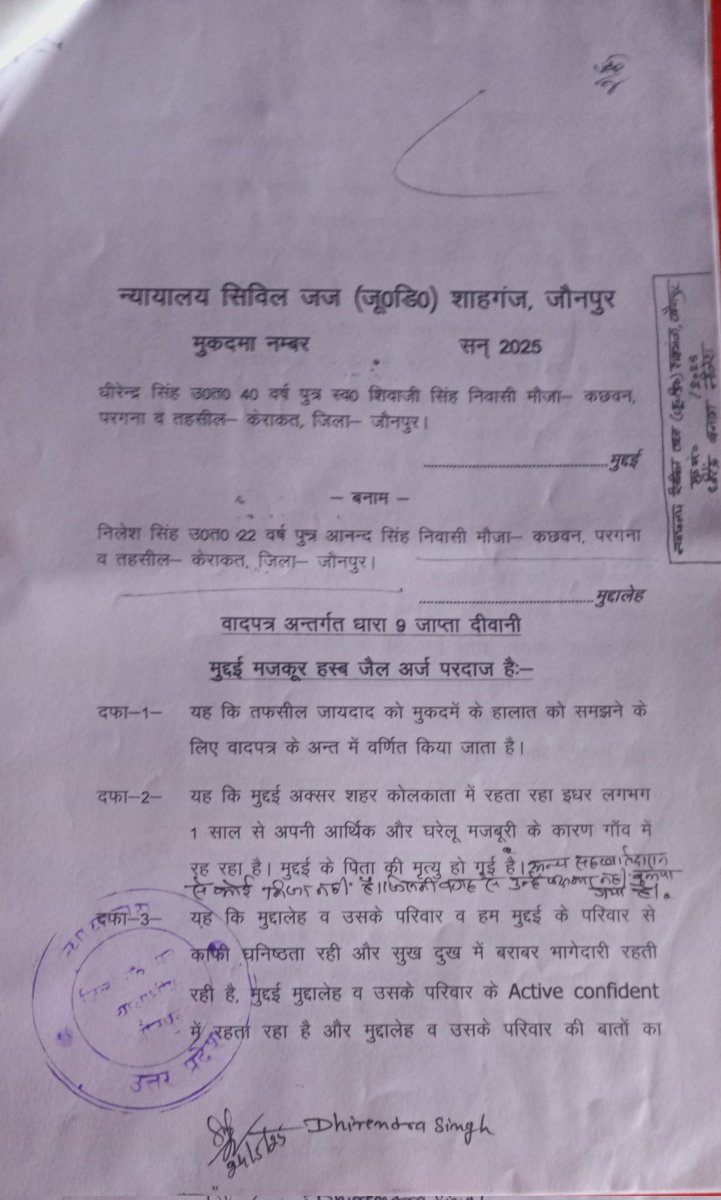 न्यायालय सिविल जज (जू0डि0) शाहगंज, जौनपुर
मुकदमा नम्बर सन् 2025
धीरेन्द्र सिंह उ0त0 40 वर्ष पुत्र स्व0 शिवाजी सिंह निवासी मौजा– कछवन,
परगना व तहसील– केराकत, जिला– जौनपुर।
मुद्दई
– बनाम –
निलेश सिंह उ0त0 22 वर्ष पुत्र आनन्द सिंह निवासी मौजा– कछवन, परगना
व तहसील– केराकत, जिला– जौनपुर।
मुद्दालेह
वादपत्र अन्तर्गत धारा 9 जाप्ता दीवानी
मुद्दई मजकूर हस्ब जैल अर्ज परदाज हैः–
दफा–1– यह कि तफसील जायदाद को मुकदमें के हालात को समझने के
लिए वादपत्र के अन्त में वर्णित किया जाता है।
दफा–2– यह कि मुद्दई अक्सर शहर कोलकाता में रहता रहा इधर लगभग
1 साल से अपनी आर्थिक और घरेलू मजबूरी के कारण गाँव में
रह रहा है। मुद्दई के पिता की मृत्यु हो गई है। अन्य
से कोई नहीं है। वजह से उन्हें पक्षकार नहीं बनाया
गया है।
दफा–3– यह कि मुद्दालेह व उसके परिवार व हम मुद्दई के परिवार से
काफी घनिष्ठता रही और सुख दुख में बराबर भागेदारी रहती
रही है, मुद्दई मुद्दालेह व उसके परिवार के Active confident
में रहता रहा है और मुद्दालेह व उसके परिवार की बातों का
उत्तर प्रदेश
24/5/25 Dhirendra Singh